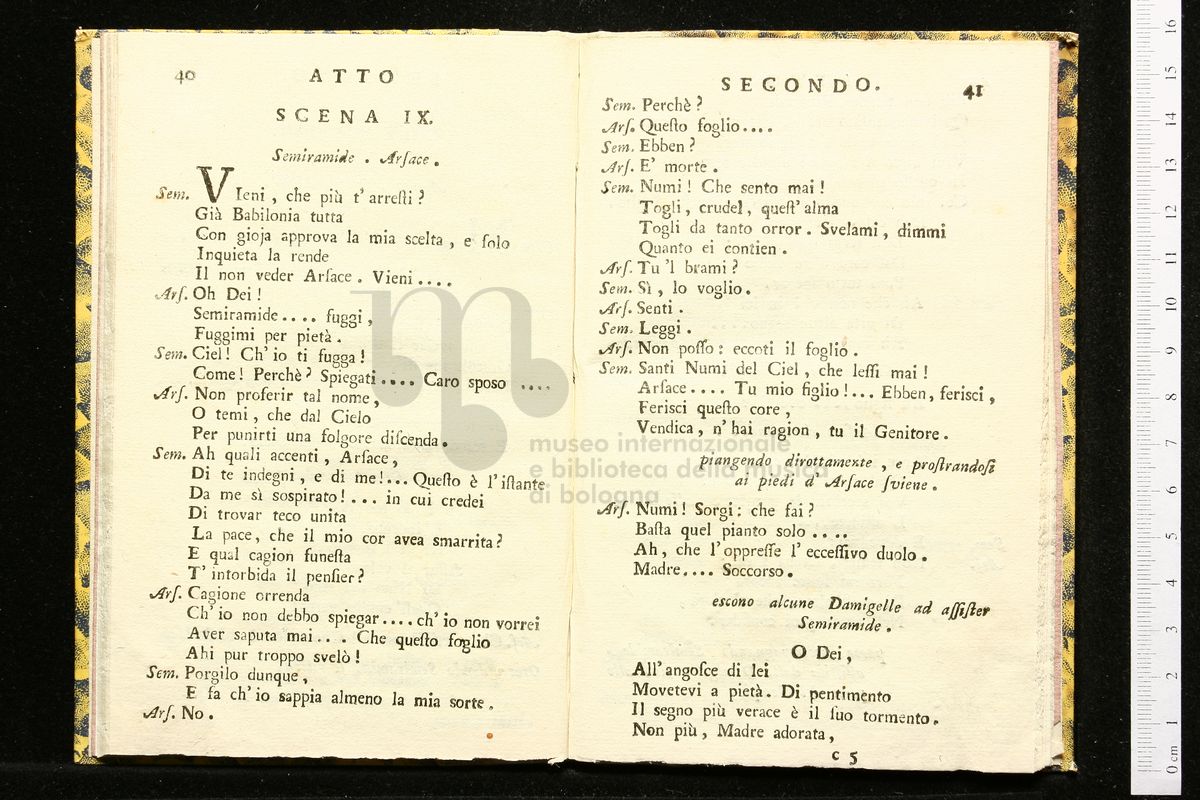 40
ATTO
SCENA IX.
Semiramide . Arſace .
Sem. VIeni , che più t' arreſti ?
Già Babilonia tutta
Con gioja approva la mia scelta , e ſolo
Inquieta la rende
Il non veder Arſace . Vieni ....
Arſ. Oh Dei !
Semiramide .... fuggi ,
Fuggimi per pietà .
Sem. Ciel ! Ch' io ti fugga !
Come ! Perchè ? Spiegati .... Caro sposo ....
Arſ. Non proferir tal nome ,
O temi , che dal Cielo
Per punirti una folgore diſcenda .
Sem. Ah quali accenti , Arſace ,
Di te indegni , e di me ! ... Queſto è l' iſtante
Da me sì sospirato ! ... in cui credei
Di trovar teco unita
La pace , che il mio cor avea smarrita ?
E qual cagion funeſta
T' intorbida il penſier ?
Arſ. Cagione orrenda
Ch' io non debbo spiegar .... ch' io non vorrei
Aver saputa mai .. . Che queſto foglio
Ahi pur troppo svelò !
Sem. Porgilo dunque ,
E fa ch' io sappia almeno la mia sorte .
Arſ. No .
SECONDO.
41
Sem. Perchè ?
Arſ. Queſto foglio ....
Sem. Ebben ?
Arſ. E' morte .
Sem. Numi ! Che sento mai !
Togli , crudel , queſt' alma
Togli da tanto orror . Svelami , dimmi
Quanto ei contien .
Arſ. Tu 'l brami ?
Sem. Sì , lo voglio .
Arſ. Senti .
Sem. Leggi .
Arſ. Non poſſo : eccoti il foglio .
Sem. Santi Numi del Ciel , che leſſi mai !
Arſace .... Tu mio figlio ! ... Ebben , ferisci ,
Ferisci queſto core ,
Vendica , n' hai ragion , tu il Genitore .
piangendo dirottamente , e proſtrandoſi
ai piedi d' Arſace ſviene .
Arſ. Numi ! Sorgi : che fai ?
Baſta quel pianto solo ....
Ah , che l' oppreſſe l' ecceſſivo duolo .
Madre .... Soccorso .
escono alcune Damigelle ad aſſiſter
Semiramide .
O Dei ,
All' angoſce di lei
Movetevi a pietà . Di pentimento
Il segno più verace è il ſuo tormento .
Non più , Madre adorata ,
C 5
museo internazionale
e biblioteca della musica
di bologna
0 cm 1 2 3 4 5 6 7 8 9 10 11 12 13 14 15 16